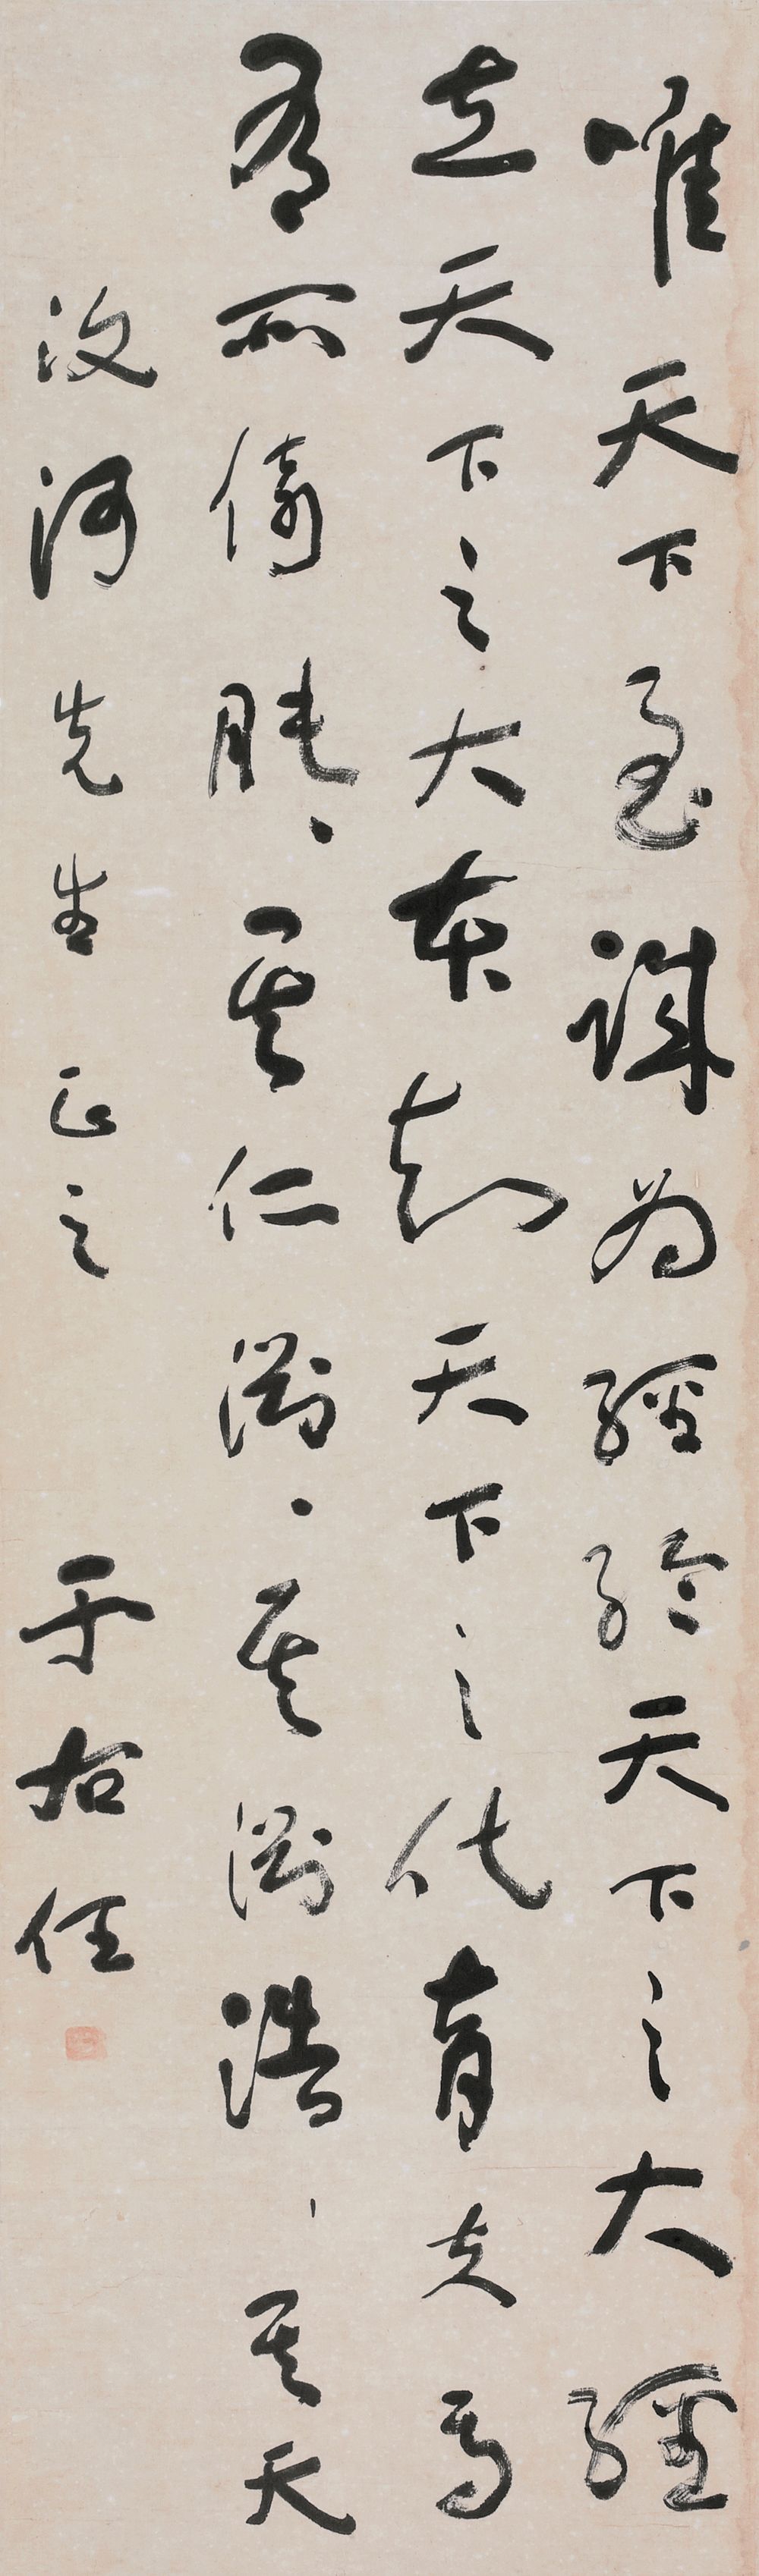 唯天下至誠为經綸天下之大經
立天下之大本知天下之化育夫焉
有所倚肫、其仁淵、其淵浩、其天
汶河先生正之 于右任